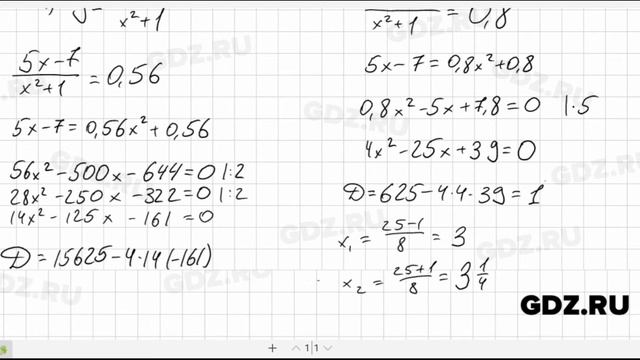 x²+1
(5x-7)/(x²+1) = 0,56
5x-7=0,56x²+0,56
56x²-500x-644=0 |:2
28x²-250x-322=0 |:2
14x²-125x-161=0
D=15625-4·14(-161)
x²+1 = 0,8
5x-7=0,8x²+0,8
0,8x²-5x+7,8=0 |·5
4x²-25x+39=0
D=625-4·4·39=1
x₁=(25-1)/8=3
x₂=(25+1)/8=3 1/4
GDZ.RU
1|1